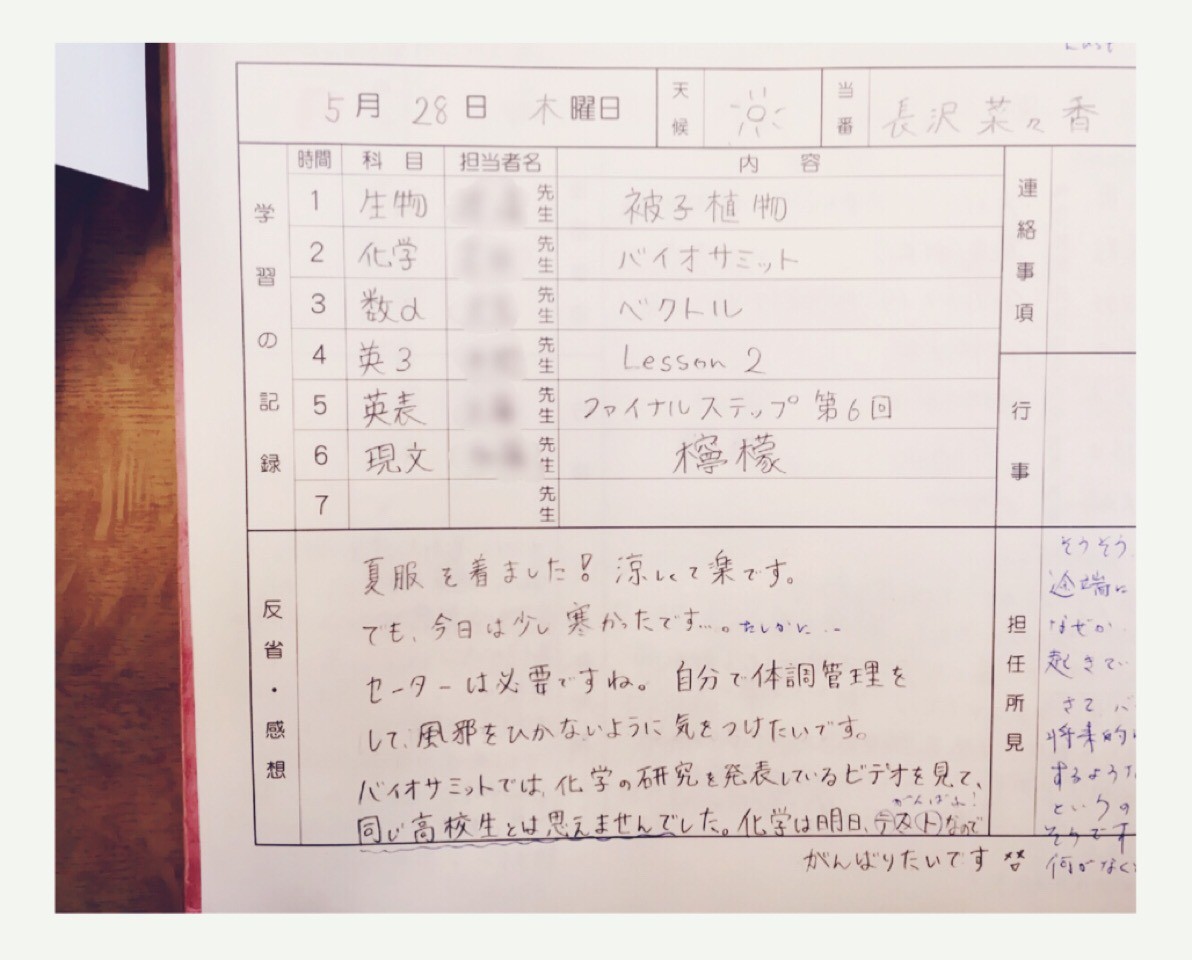 5月 28日 木曜日 天候 当番 長沢菜々香
学習の記録
時間 科目 担当者名 内容 連絡事項
1 生物 先生 被子植物
2 化学 先生 バイオサミット
3 数α 先生 ベクトル
4 英3 先生 Lesson 2
5 英表 先生 ファイナルステップ 第6回
6 現文 先生 檸檬
7 先生
行事
反省・感想
夏服を着ました! 涼しくて楽です。
でも、今日は少し寒かったです…。たしかに…
セーターは必要ですね。自分で体調管理を
して、風邪をひかないように気をつけたいです。
バイオサミットでは、化学の研究を発表しているビデオを見て、
がんばれ!
同じ高校生とは思えませんでした。化学は明日、テストなので
がんばりたいです
担任所見
そうそう
途端に
なぜか
起きて
さて、バ
将来的
するよう
というの
そうです
何かなく